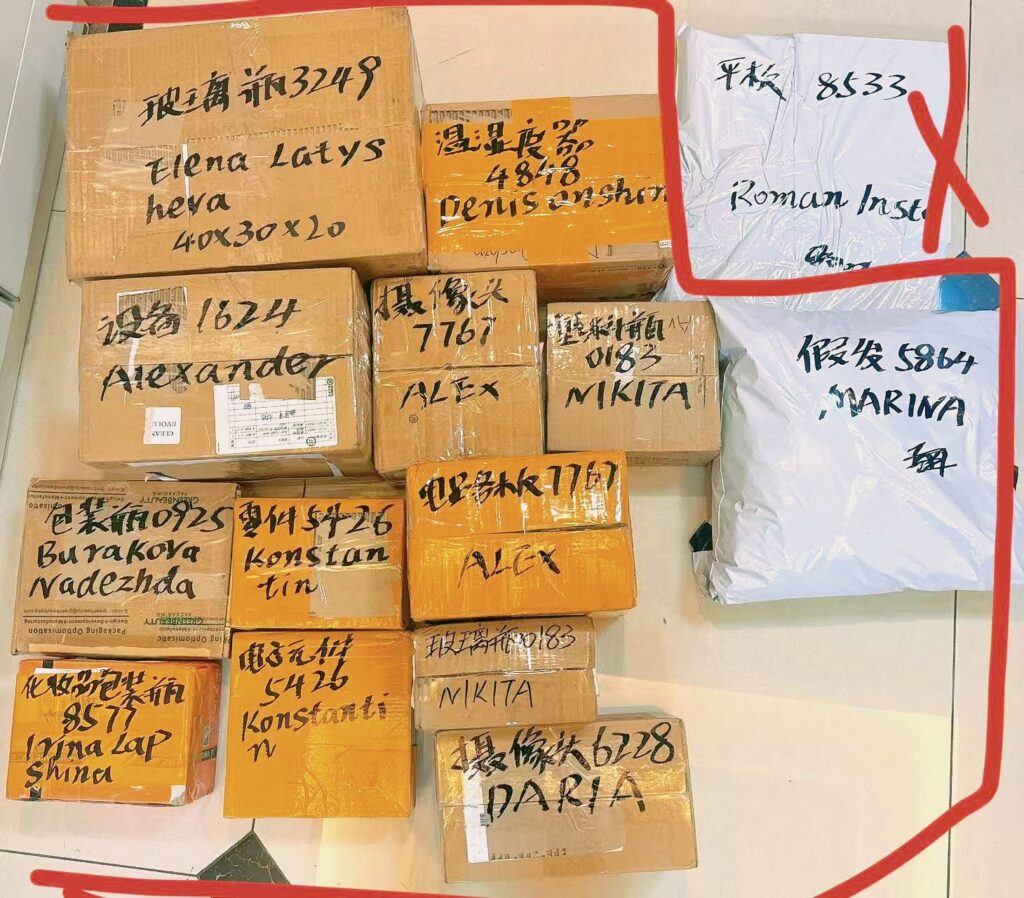 玻璃瓶3249
Elena Latys
heva
40x30x20
温湿度器
4848
Denis anshin
平板 8533
Roman Inst
设备1624
Alexander
摄像头
7767
ALEX
塑料瓶
0183
NIKITA
假发5864
MARINA
包装瓶0925
Burakova
Nadezhda
GREENBEAUTY
PACKAGING
Packaging Optimisatio
零件5426
Konstan
tin
电路板7767
ALEX
化妆品包装瓶
8577
Irina Lap
shina
电子元件
5426
Konstanti
n
玻璃瓶0183
NIKITA
摄像头6228
DARIA